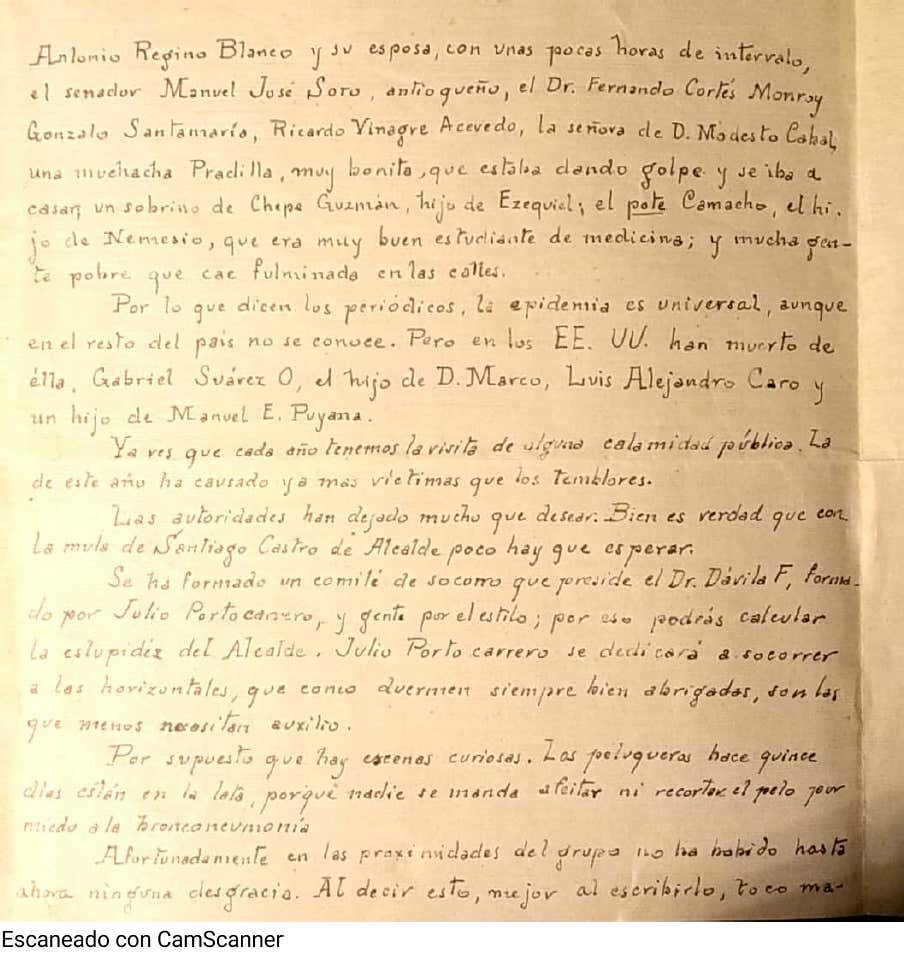 Antonio Regino Blanco y su esposa, con unas pocas horas de intervalo,
el senador Manuel José Soto, antioqueño, el Dr. Fernando Cortés Monroy
Gonzalo Santamaría, Ricardo Vinagre Acevedo, la señora de D. Modesto Cabal,
una muchacha Pradilla, muy bonita, que estaba dando golpe y se iba a
casar; un sobrino de Chepe Guzmán, hijo de Ezequiel; el pote Camacho, el hi-
jo de Nemesio, que era muy buen estudiante de medicina; y mucha gen-
te pobre que cae fulminada en las calles.
Por lo que dicen los periódicos, la epidemia es universal, aunque
en el resto del país no se conoce. Pero en los EE. UU. han muerto de
élla, Gabriel Suárez O, el hijo de D. Marco, Luis Alejandro Caro y
un hijo de Manuel E. Puyana.
Ya ves que cada año tenemos la visita de alguna calamidad pública. La
de este año ha causado ya mas víctimas que los temblores.
Las autoridades han dejado mucho que desear. Bien es verdad que con
la mula de Santiago Castro de Alcalde poco hay que esperar.
Se ha formado un comité de socorro que preside el Dr. Dávila F, forma-
do por Julio Portocarrero, y gente por el estilo; por eso podrás calcular
la estupidéz del Alcalde. Julio Portocarrero se dedicará a socorrer
a las horizontales, que como duermen siempre bien abrigadas, son las
que menos necesitan auxilio.
Por supuesto que hay escenas curiosas. Los peluqueros hace quince
días están en la lata, porqué nadie se manda afeitar ni recortar el pelo por
miedo a la bronconeumonía
Afortunadamente en las proximidades del grupo no ha habido hasta
ahora ninguna desgracia. Al decir esto, mejor al escribirlo, toco ma-
Escaneado con CamScanner